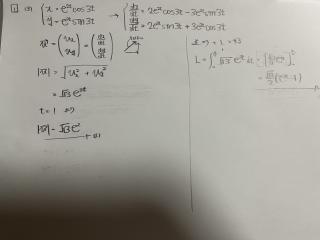 1 (1) { x = e^{2t}cos3t
y = e^{2t}sin3t
→ { dx/dt = 2e^{2t}cos3t - 3e^{2t}sin3t
dy/dt = 2e^{2t}sin3t + 3e^{2t}cos3t
v = (vx vy) = (dx/dt dy/dt)
|v| = √(vx² + vy²)
= √13 e^{2t}
t = 1 ⇒
|v| = √13 e²
L = ∫ √13 e^{2t} dt = [√13/2 e^{2t}]